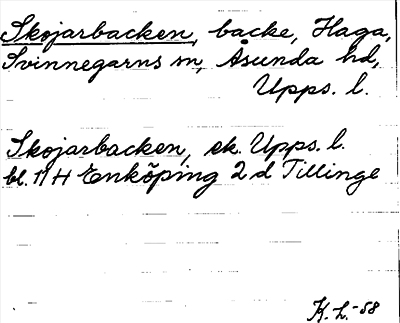 Skojarbacken, backe, Haga,
Svinnegarns sn, Åsunda hd,
Upps. l.
Skojarbacken, ek. Upps. l.
bl. 11 H Enköping 2 d Tillinge
K. L. -58